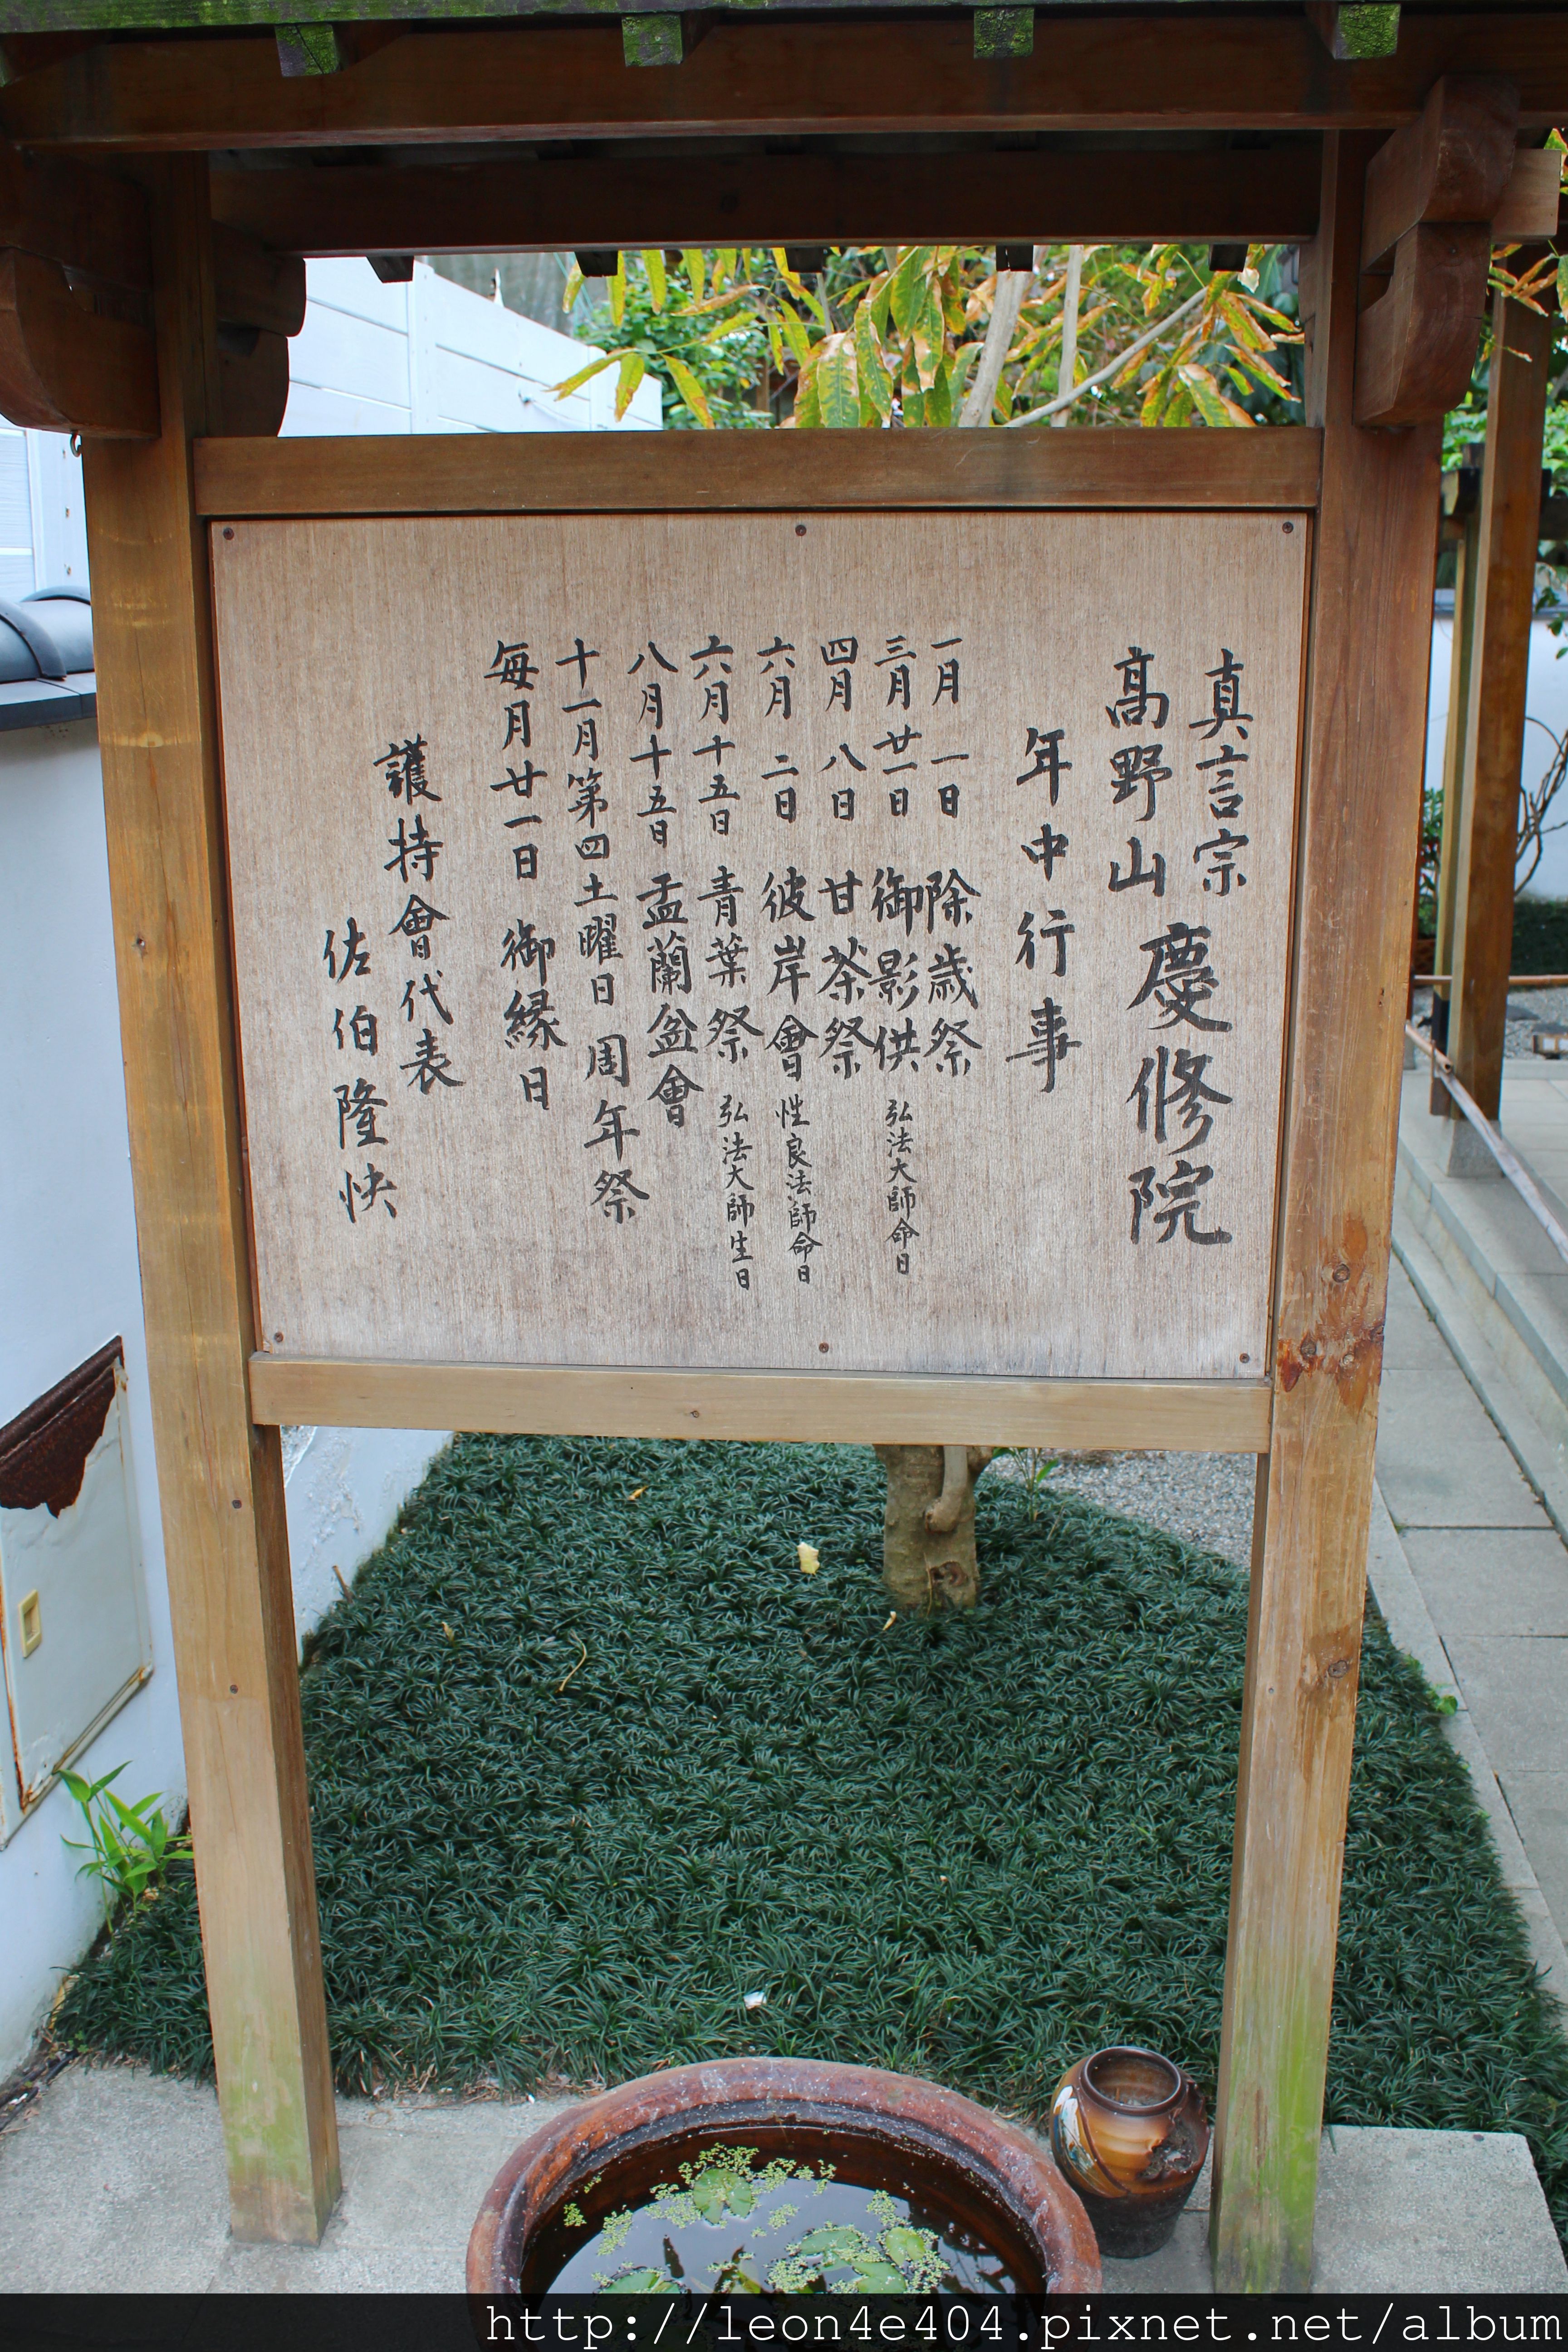 真言宗
高野山 慶修院
年中行事
一月 一日 除歲祭
三月廿一日 御影供 弘法大師命日
四月 八日 甘茶祭
六月 二日 彼岸會 性良法師命日
六月十五日 青葉祭 弘法大師生日
八月十五日 盂蘭盆會
十一月第四土曜日 周年祭
每月廿一日 御縁日
護持會代表
佐伯隆快
http://leon4e404.pixnet.net/album